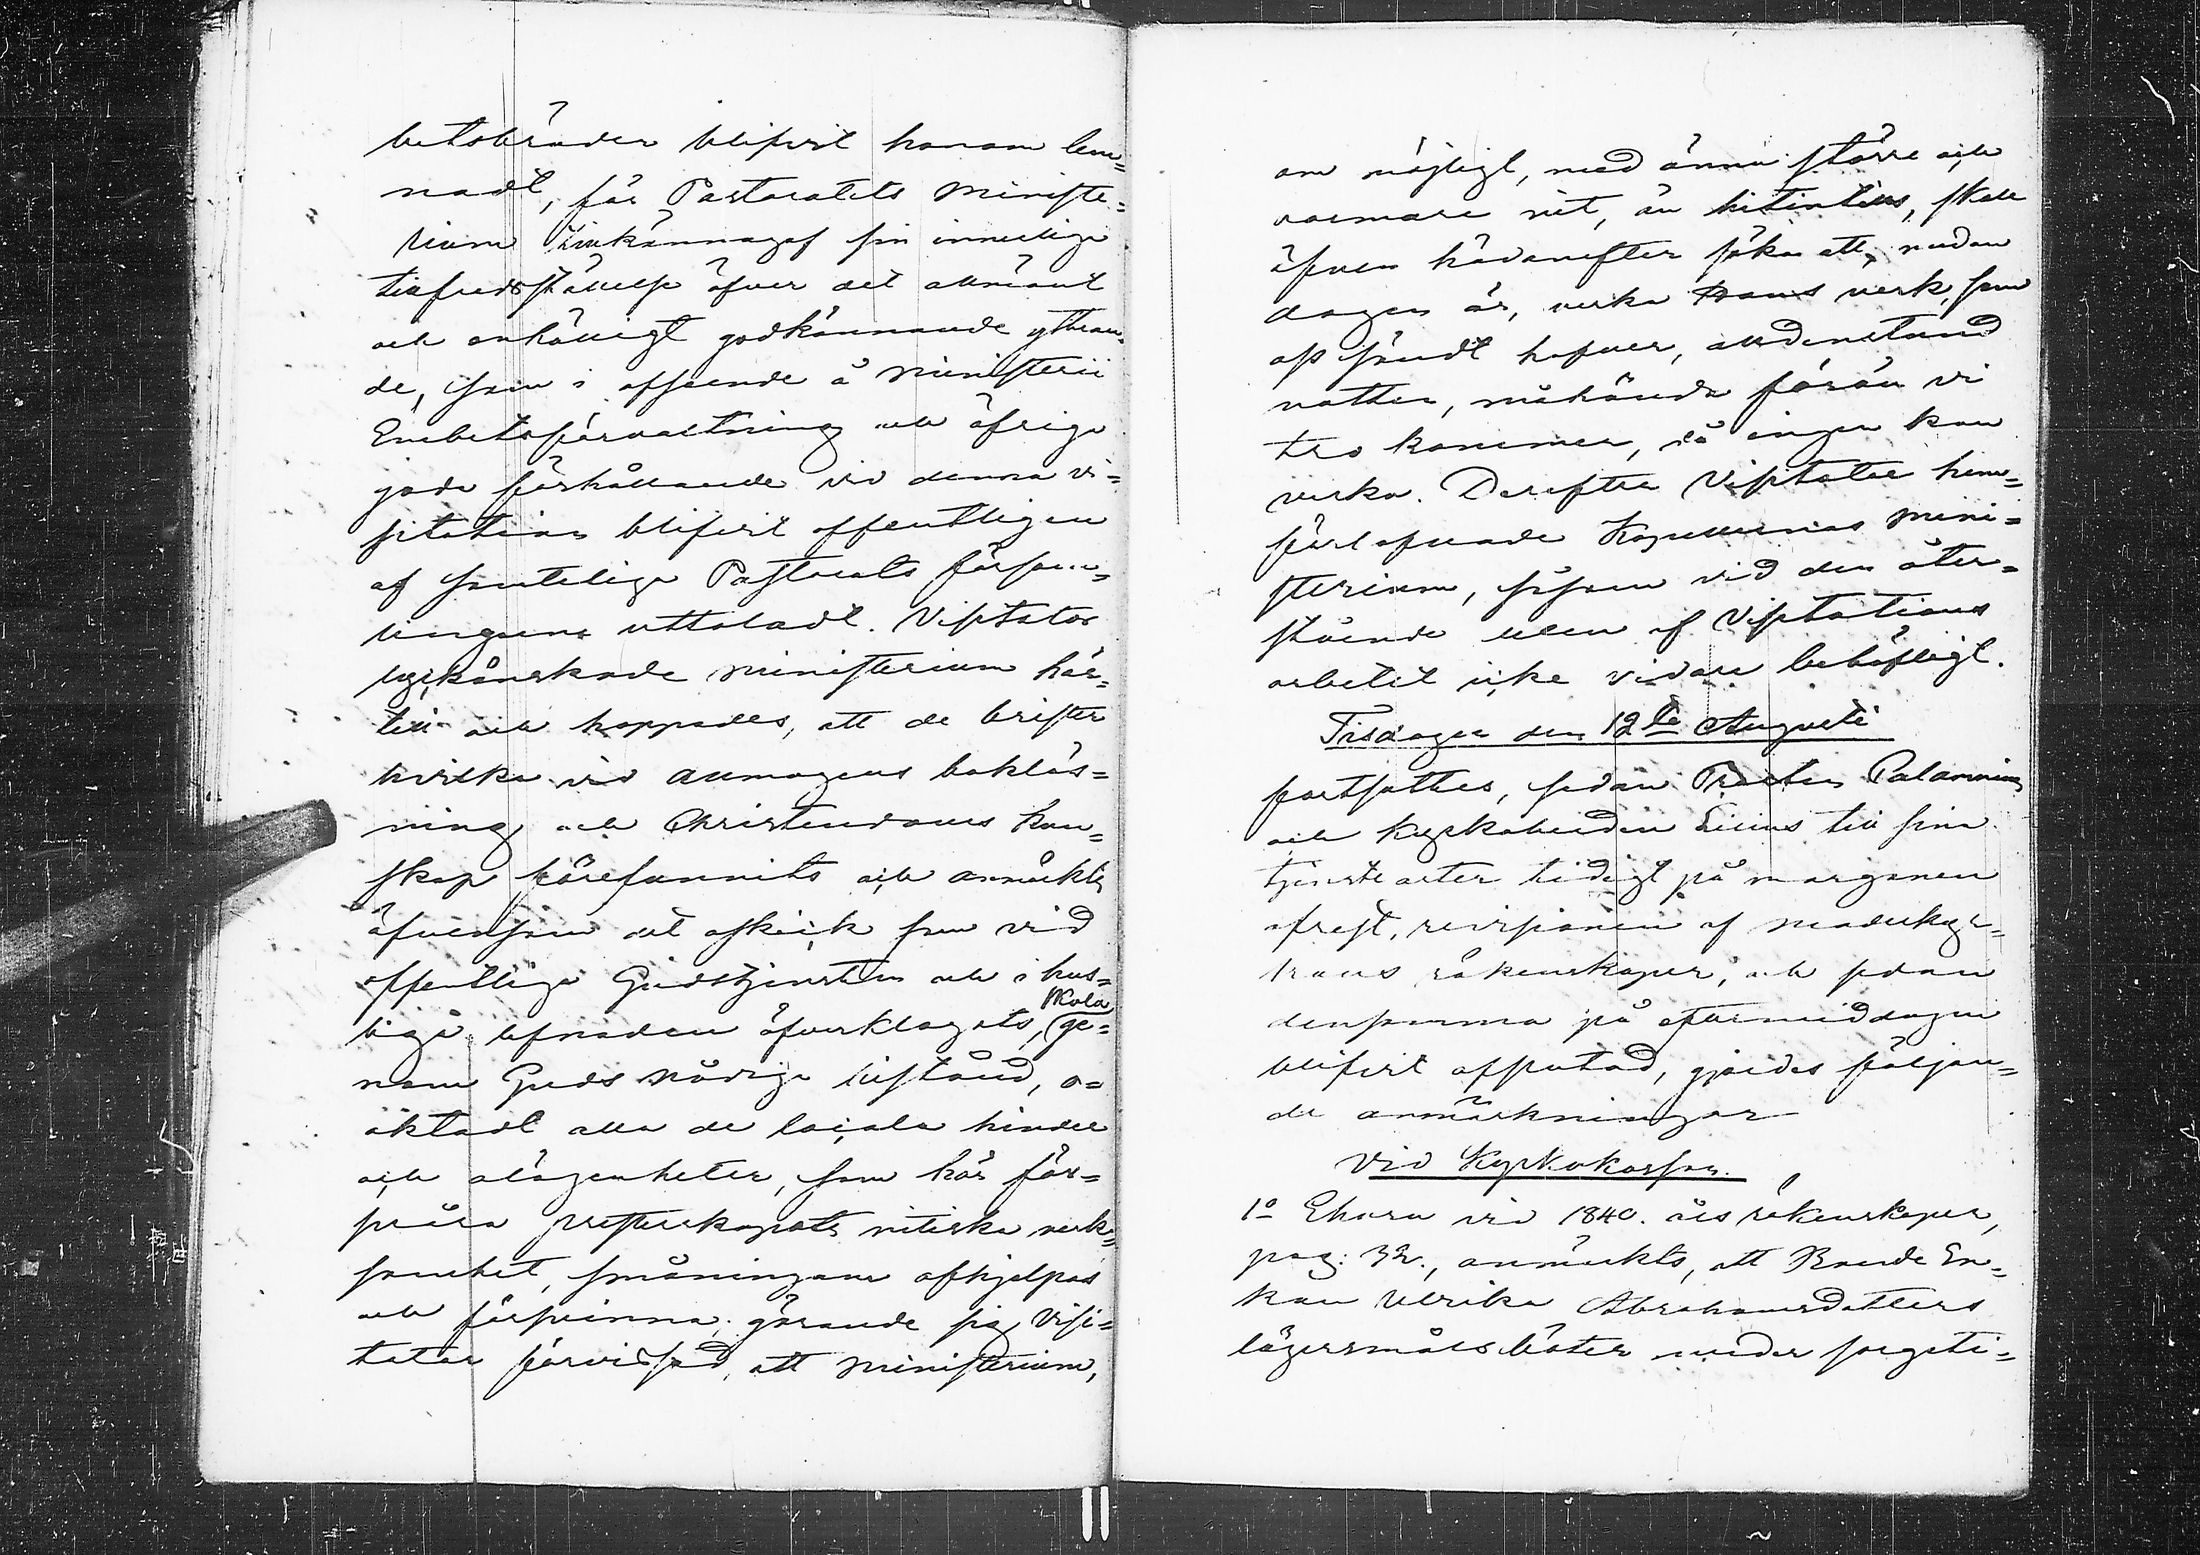 betsbröder blifvit honom lem=
nadt, för Pastoratets Ministe=
rium tillkännagaf sin innerliga
tillfredsställelse öfver det allmänt
och enhälligt godkännande yttran=
de, som i afseende å Ministerii
Embetsförvaltning och öfriga
goda förhållande vid denna vi=
sitation blifvit offentligen
af samtelige Pastorats försam=
lingarne uttaladt. Visitator
lyckönskade Ministerium här=
till och hoppades, att de brister
hvilka vid allmogens bokläs=
ning och Christendoms kun=
skap förefunnits och anmärkts
äfvensom det oskick som vid
offentliga Gudstjensten och i hus=
liga lefnaden öfverklagats, skola ge=
nom Guds nådiga bistånd, o=
aktadt alla de locala hinder
och olägenheter, som här för=
svåra presterskapets nitiska verk=
samhet, småningom afhjelpas
och försvinna; görande sig Visi=
tator förvissad, att Ministerium,
om möjligt, med ännu större och
varmare nit, än hitintills, skall
äfven hädanefter söka att, medan
dagen är, verka Hans verk, som
oss sändt hafver, alldenstund
natten, måhända förän vi
tro kommer, då ingen kan
verka. Derefter Visitator hem=
förlofvade Kapellernas Mini=
sterium, såsom vid den åter=
stående delen af Visitations
arbetet icke vidare behöfligt.
Tisdagen den 12te Augusti
fortsattes, sedan Prosten Palanrius
och Kyrkoherden Eleius till sina
tjensteorter tidigt på morgonen
afrest, revisionen af Moderkyr=
kans räkenskaper, och sedan
densamma på eftermiddagen
blifvit afslutad, gjordes följan=
de anmärkningar
Vid Kyrkokassan.
1o Ehuru vid 1840. års räkenskaper,
pag: 32., anmärkts, att Bonde En=
kan Ulrika Abrahamsdotters
lägersmålsböter under sorgeti=